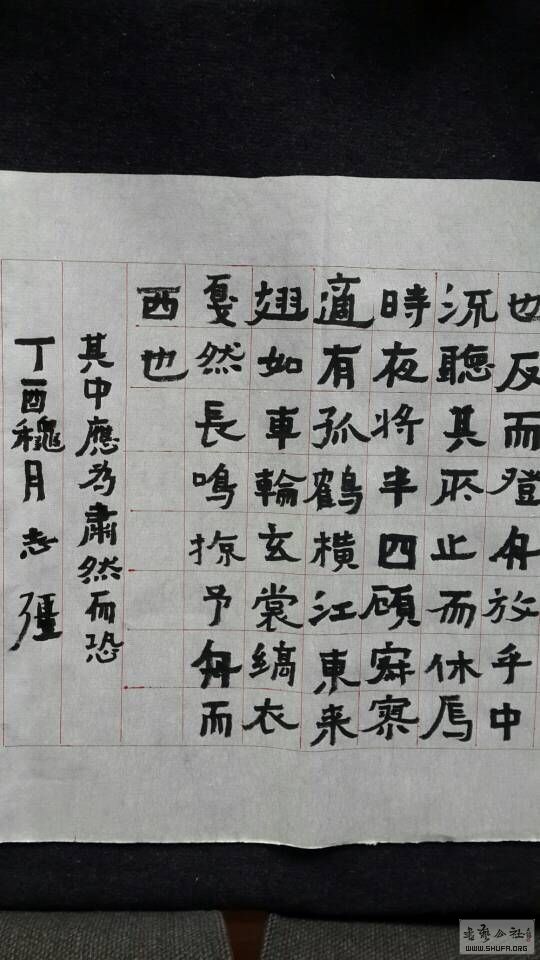 也反而登舟放乎中
流聽其所止而休焉
時夜將半四顧寂寥
適有孤鶴橫江東来
翅如車輪玄裳縞衣
戛然長鳴掠予舟而
西也
其中應為肅然而恐
丁酉穐月志疆
书艺公社
WWW.SHUFA.ORG